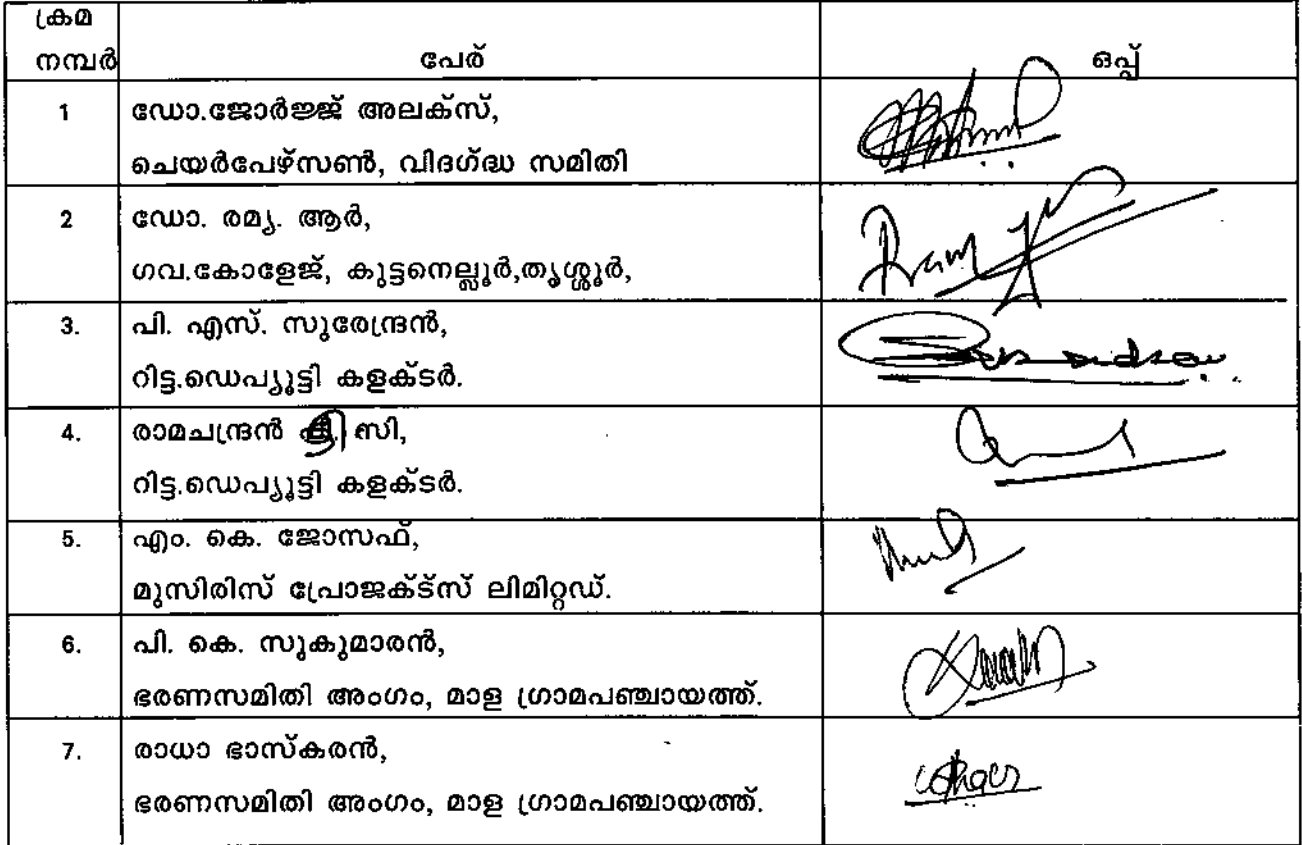 ക്രമ
നമ്പർ പേര് ഒപ്പ്
1 ഡോ.ജോർജ്ജ് അലക്സ്,
ചെയർപേഴ്സൺ, വിദഗ്ദ്ധ സമിതി
2 ഡോ. രമ്യ. ആർ,
ഗവ.കോളേജ്, കുട്ടനെല്ലൂർ,തൃശ്ശൂർ,
3. പി. എസ്. സുരേന്ദ്രൻ,
റിട്ട.ഡെപ്യൂട്ടി കളക്ടർ.
4. രാമചന്ദ്രൻ സി,
റിട്ട.ഡെപ്യൂട്ടി കളക്ടർ.
5. എം. കെ. ജോസഫ്,
മുസിരിസ് പ്രോജക്ട്സ് ലിമിറ്റഡ്.
6. പി. കെ. സുകുമാരൻ,
ഭരണസമിതി അംഗം, മാള ഗ്രാമപഞ്ചായത്ത്.
7. രാധാ ഭാസ്കരൻ,
ഭരണസമിതി അംഗം, മാള ഗ്രാമപഞ്ചായത്ത്.